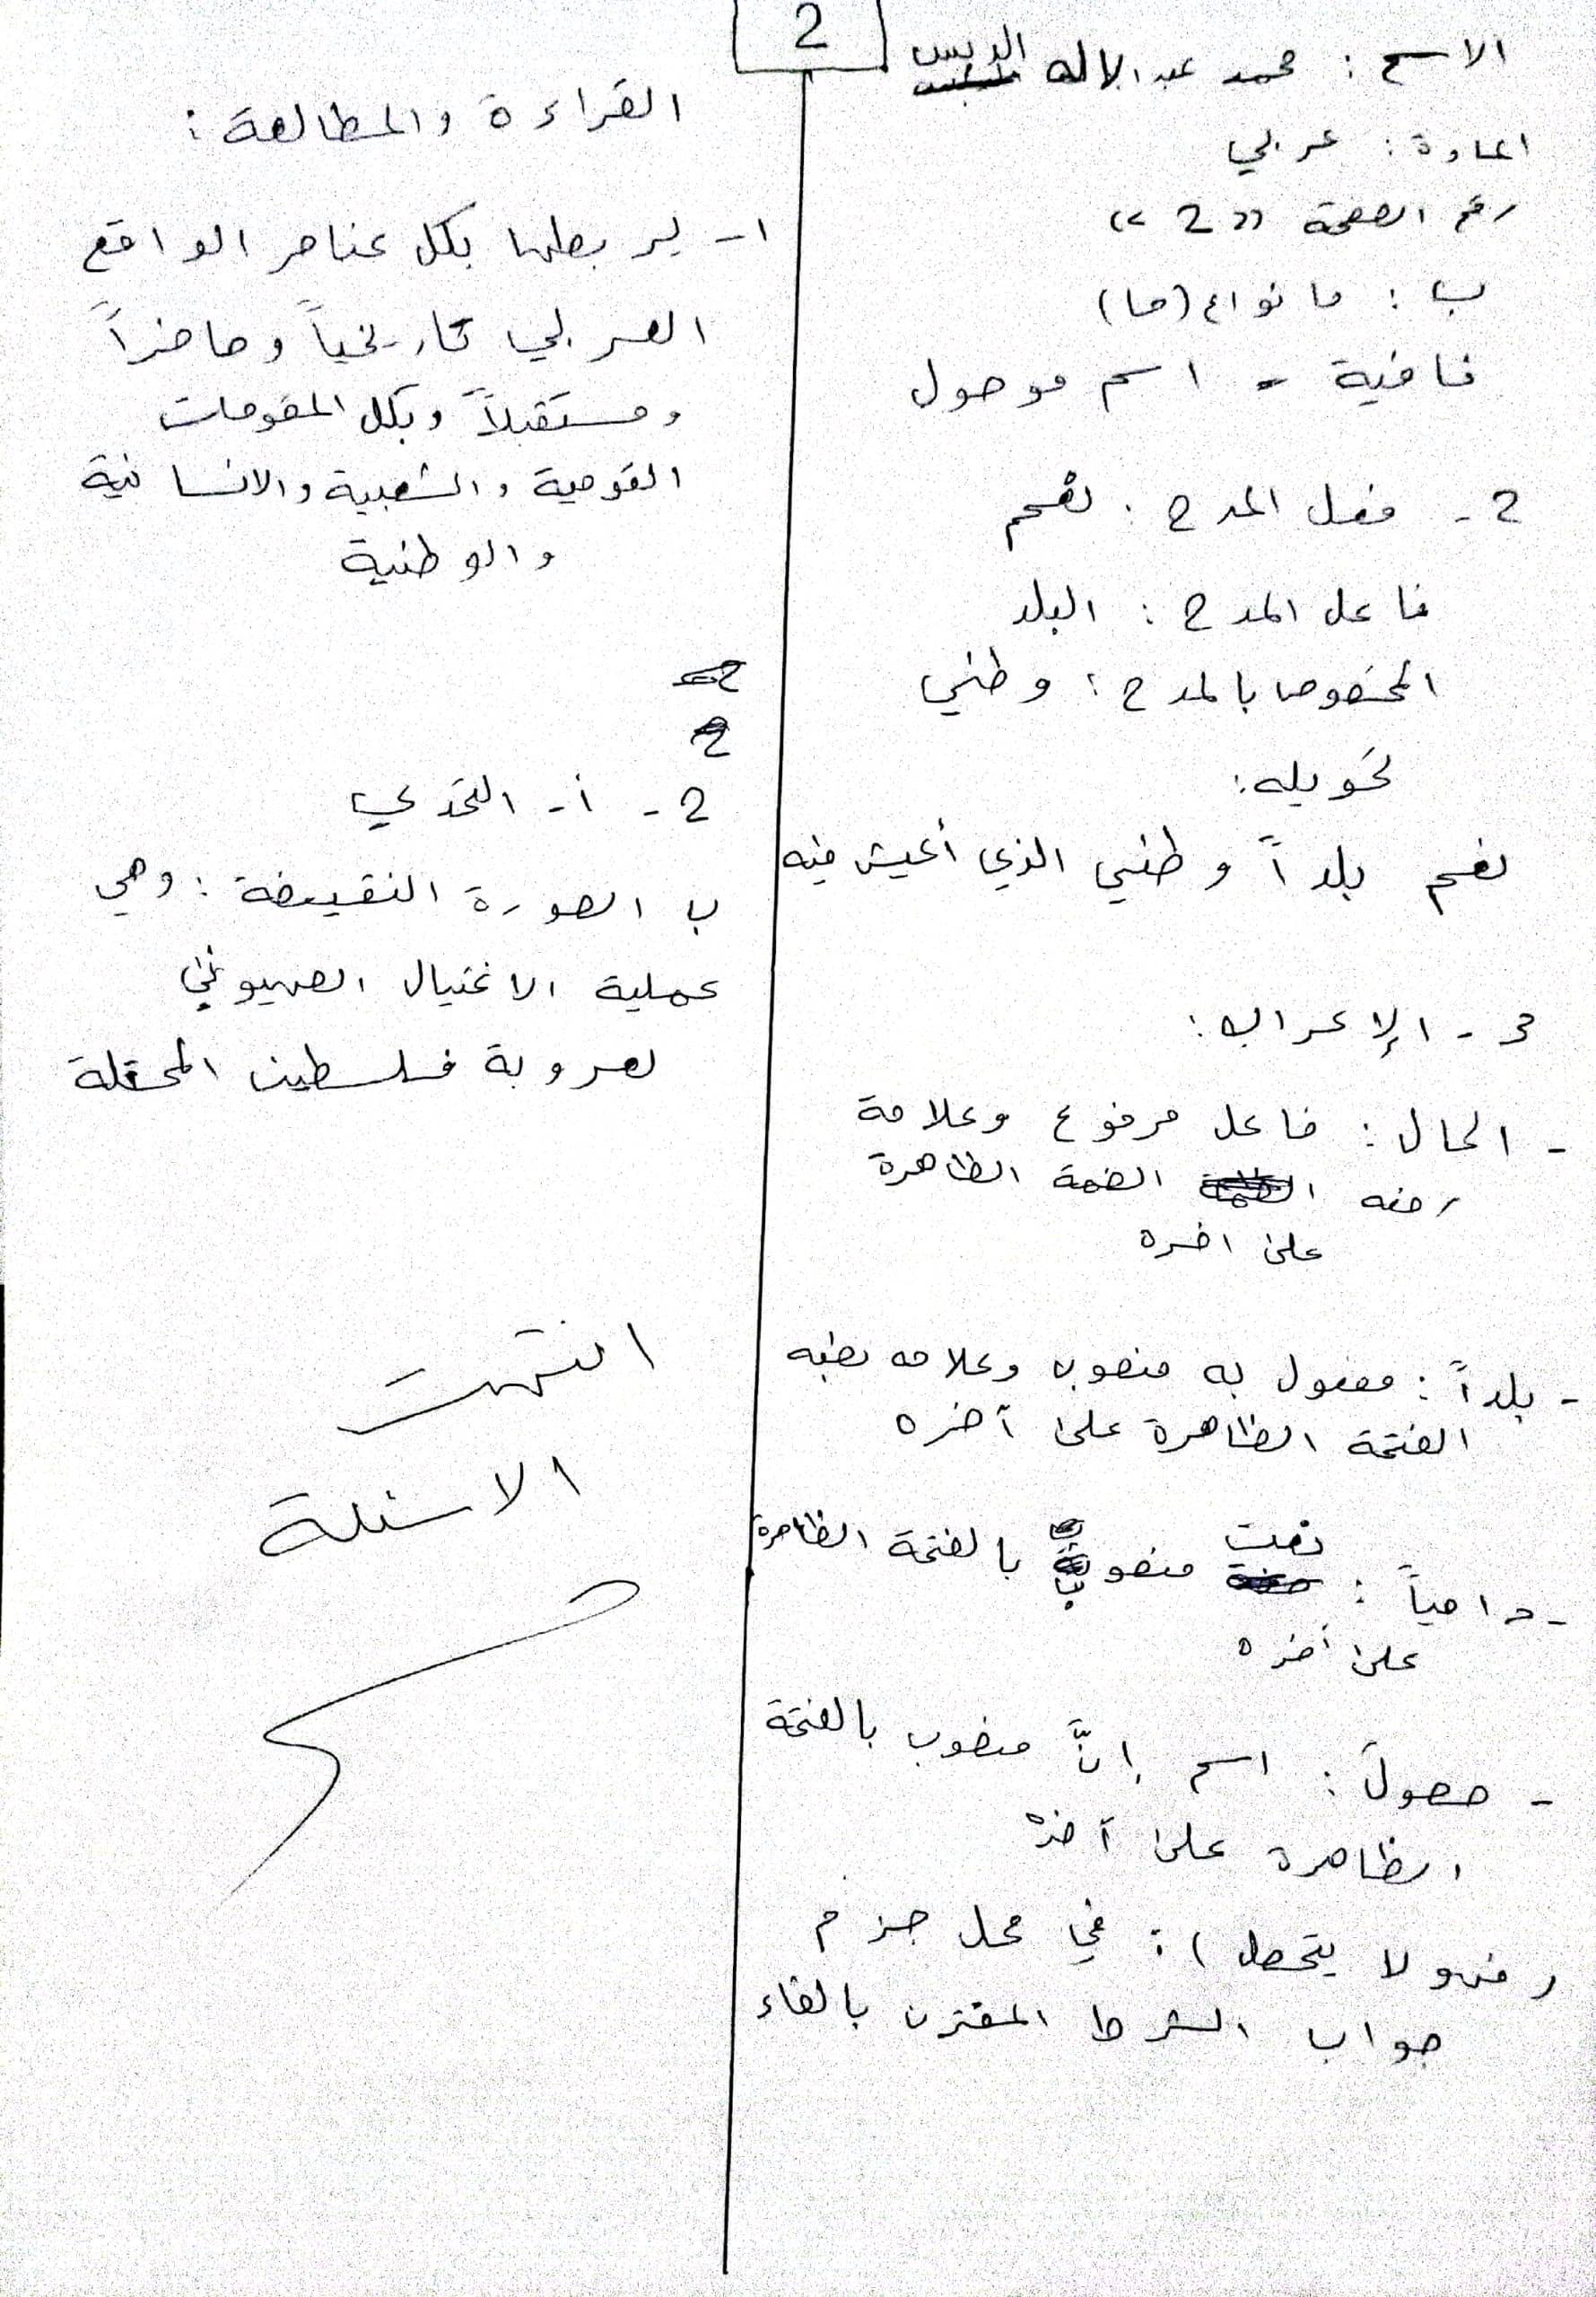 2
الاسم : محمد عبدالاله الدبس
المادة : عربي
رقم الصفحة «2»
ب : ما نواع (ما)
نافية - اسم موصول
2 - فعل المدح : نعم
فاعل المدح : البلد
المخصوص بالمدح : وطني
تحويله :
نعم بلداً وطني الذي أعيش فيه
3 - الإعراب :
- الحال : فاعل مرفوع وعلامة
رفعه الضمة الظاهرة
على اخره
- بلداً : مفعول به منصوب وعلامه نصبه
الفتحة الظاهرة على آخره
- دامياً : نعت منصوب بالفتحة الظاهرة
على أخره
- حصولَ : اسم إنَّ منصوب بالفتحة
الظاهرة على آخره
(فهو لا يتحصل) : في محل جزم
جواب الشرط المقترن بالفاء
القراءة والمطالعة :
1- لير بطها بكل عناصر الواقع
العربي تاريخياً وحاضراً
ومستقبلاً وبكل المقومات
القومية والشعبية والانسانية
والوطنية
2 - أ - التحدي
ب الصورة النقيضة : وهي
عملية الاغتيال الصهيوني
لعروبة فلسطين المحتلة
انتهت
الاسئلة